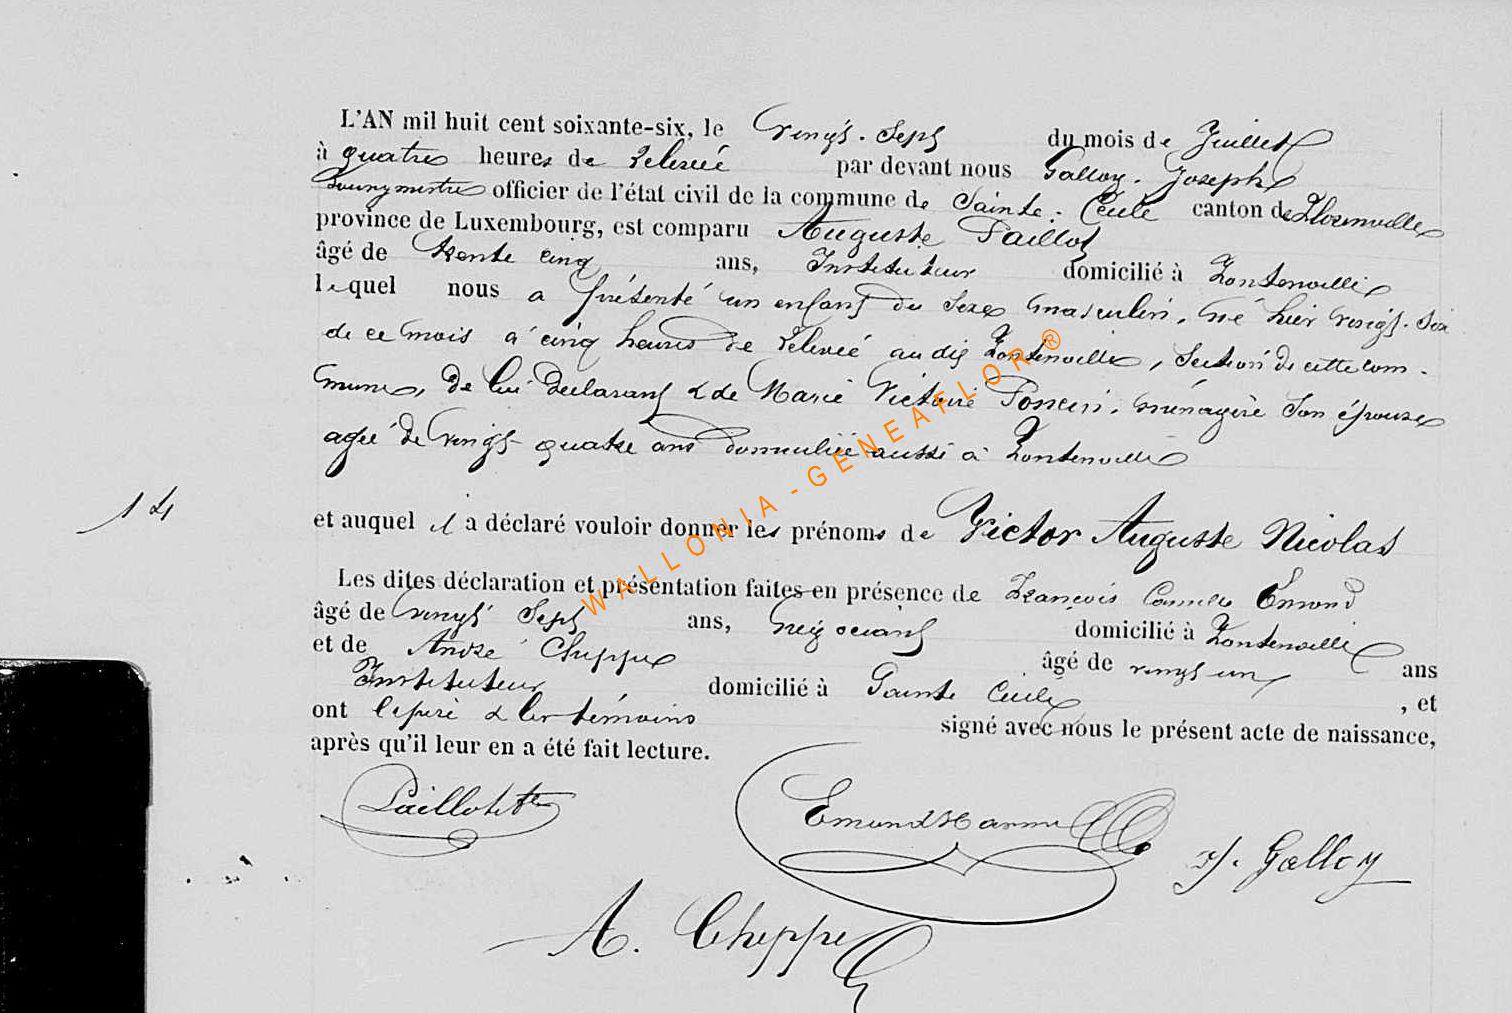 L'AN mil huit cent soixante-six, le vingt-sept du mois de Juillet
à quatre heures de relevée par devant nous Galloy Joseph
Bourgmestre officier de l'état civil de la commune de Sainte-Cécile canton de Florenville
province de Luxembourg, est comparu Auguste Paillot
âgé de trente cinq ans, Instituteur domicilié à Fontenoille
lequel nous a présenté un enfant du sexe masculin, né hier vingt-six
de ce mois à cinq heures de relevée au dit Fontenoille, section de cette com-
mune, de lui déclarant & de Marie Victoire Poncin, ménagère son épouse
agée de vingt-quatre ans domiciliée aussi à Fontenoille
14
et auquel il a déclaré vouloir donner les prénoms de Victor Auguste Nicolas
Les dites déclaration et présentation faites en présence de François Emond
âgé de vingt sept ans, négociant domicilié à Fontenoille
et de André Cheppe âgé de vingt un ans
Instituteur domicilié à Sainte Cécile, et
ont le père & les témoins signé avec nous le présent acte de naissance,
après qu'il leur en a été fait lecture.
Paillot Ate
Emond J. Galloy
A. Cheppe
WALLONIA - GENEAFLOR ®